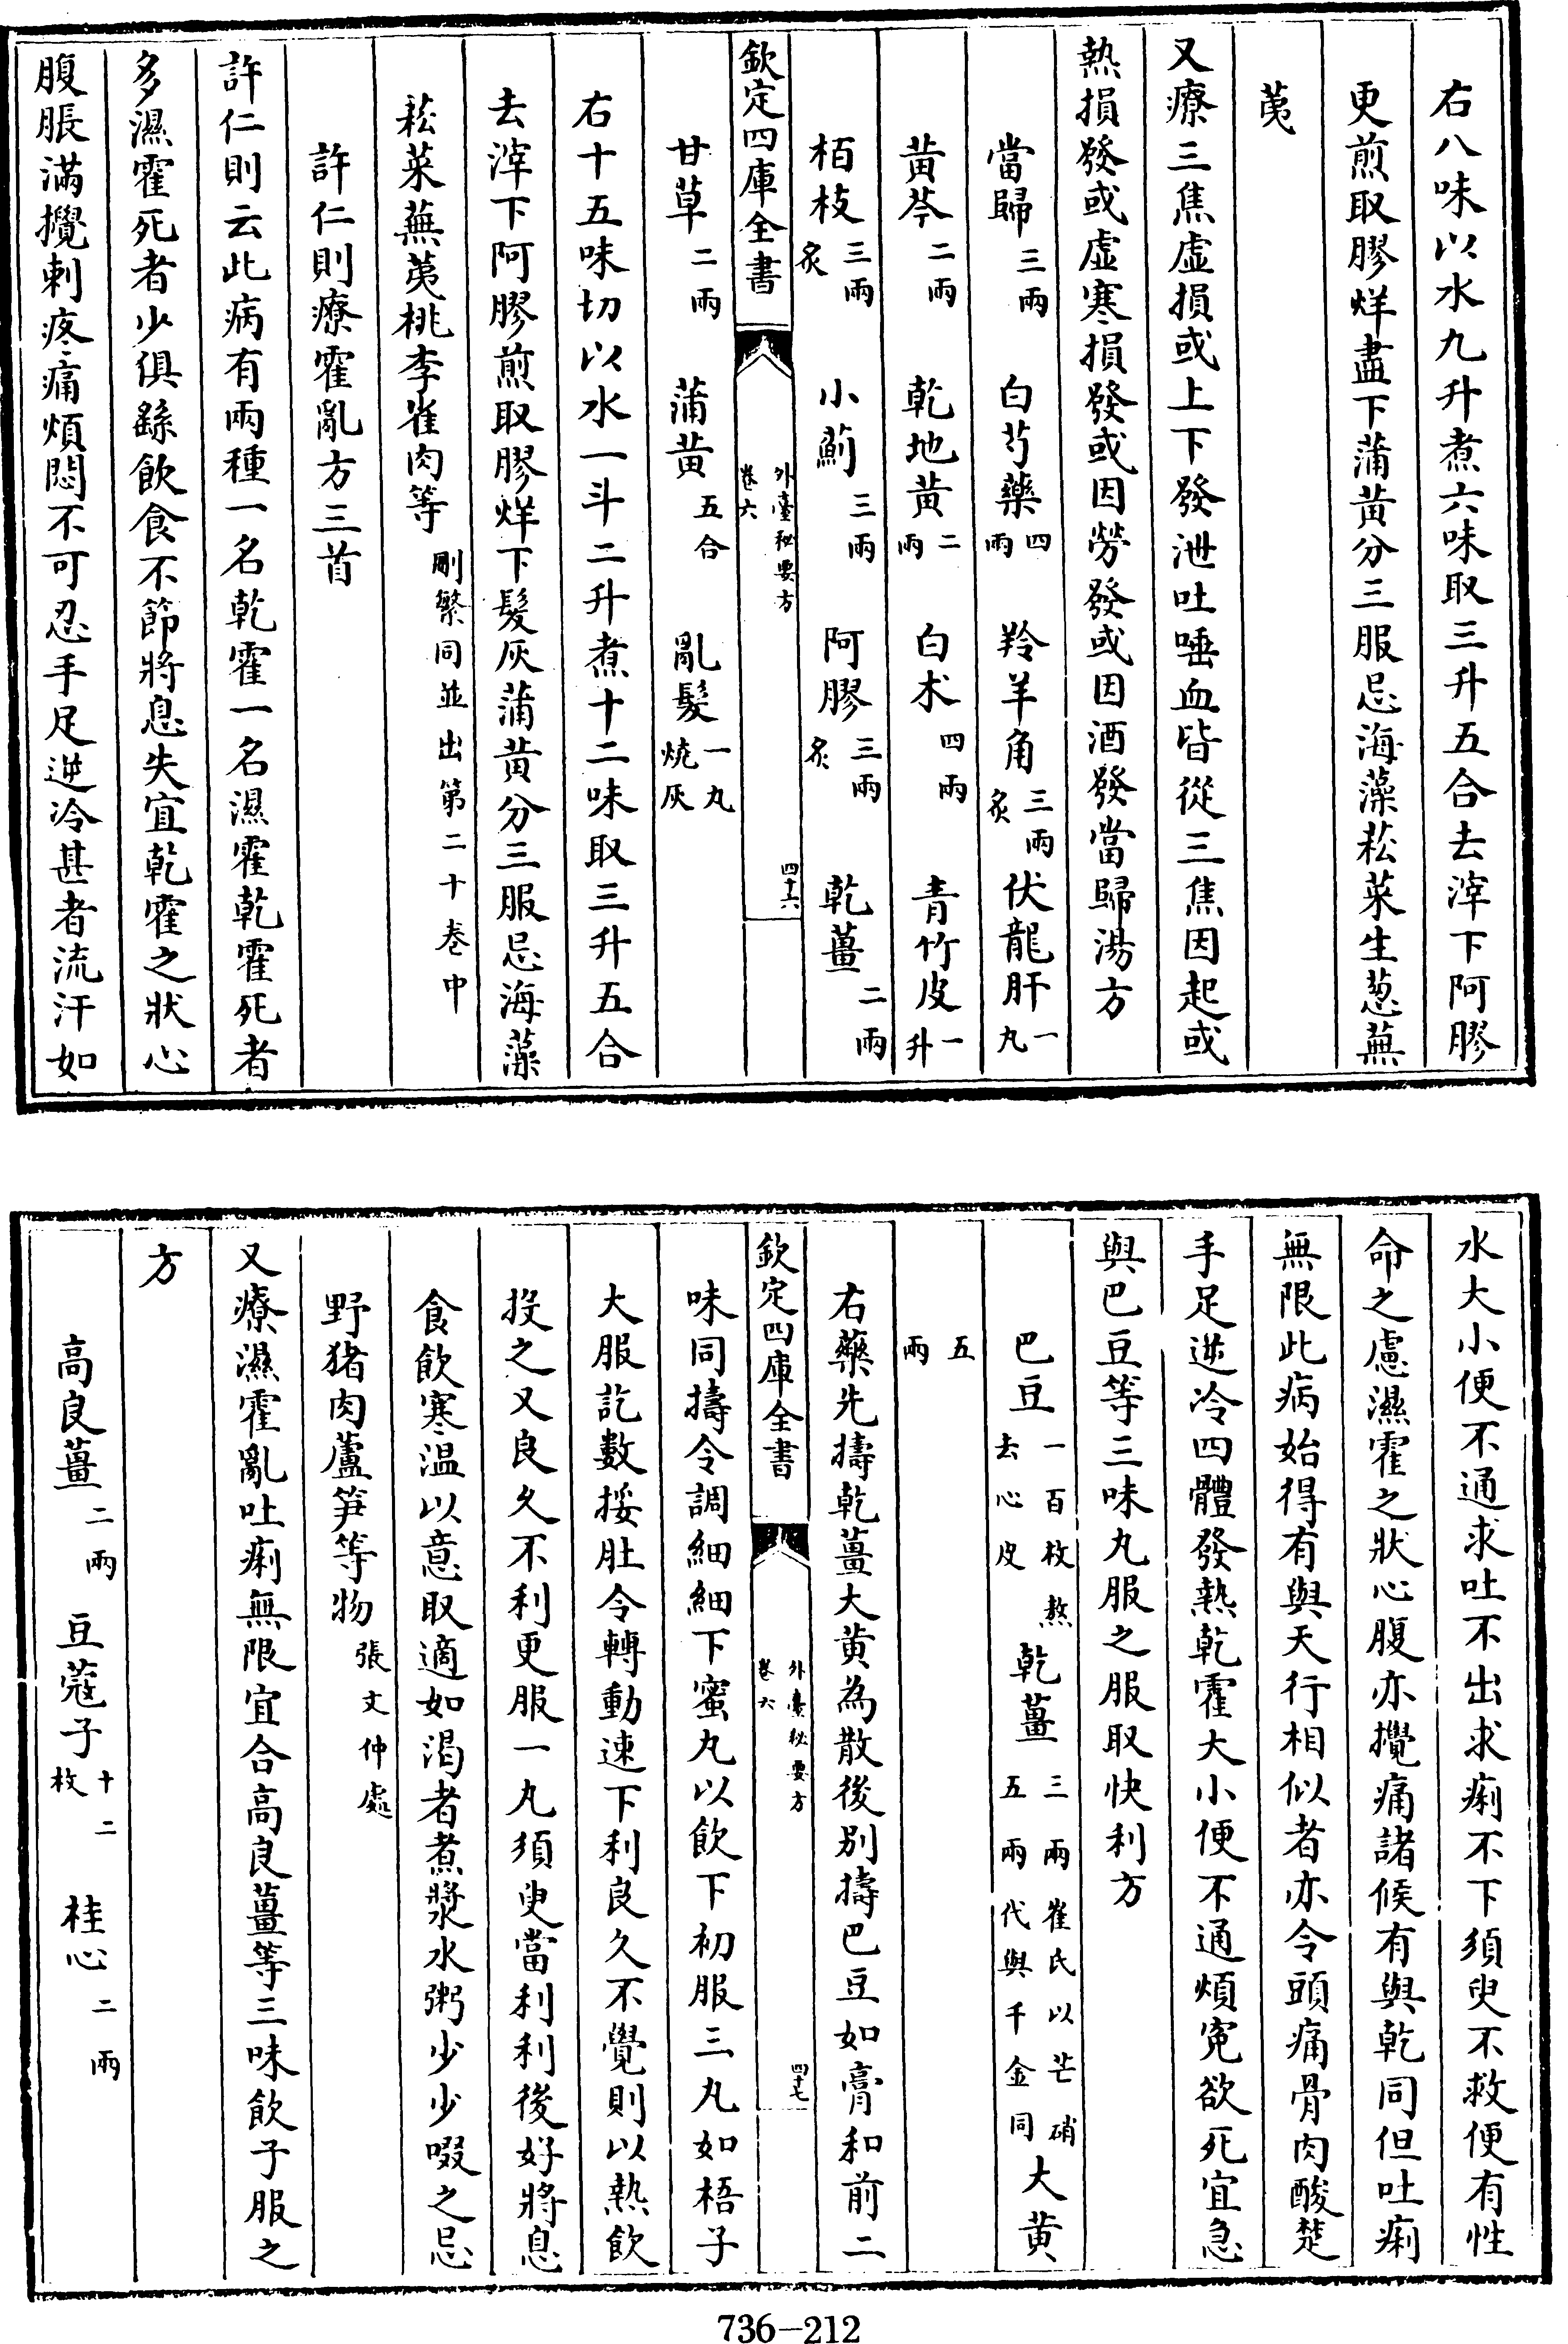 右八味以水九升煮六味取三升五合去滓下阿膠
更煎取膠烊盡下蒲黄分三服忌海藻菘菜生葱蕪
荑
又療三焦虚損或上下發泄吐唾血皆從三焦因起或
熱損發或虚寒損發或因勞發或因酒發當歸湯方
當歸三兩 白芍藥四兩 羚羊角三兩炙 伏龍肝一丸
黄芩二兩 乾地黄二兩 白术四兩 青竹皮一升
栢枝三兩炙 小薊三兩 阿膠三兩炙 乾薑二兩
欽定四庫全書 外臺秘要方卷六 四十六
甘草二兩 蒲黄五合 亂髮一丸燒灰
右十五味切以水一斗二升煮十二味取三升五合
去滓下阿膠煎取膠烊下髮灰蒲黄分三服忌海藻
菘菜蕪荑桃李雀肉等刪繁同並出第二十卷中
許仁則療霍亂方三首
許仁則云此病有兩種一名乾霍一名濕霍乾霍死者
多濕霍死者少俱繇飲食不節將息失宜乾霍之狀心
腹脹滿攪刺疼痛煩悶不可忍手足逆冷甚者流汗如
水大小便不通求吐不出求痢不下須臾不救便有性
命之慮濕霍之狀心腹亦攪痛諸候有與乾同但吐痢
無限此病始得有與天行相似者亦令頭痛骨肉酸楚
手足逆冷四體發熱乾霍大小便不通煩寃欲死宜急
與巴豆等三味丸服之服取快利方
巴豆一百枚熬去心皮 乾薑三兩崔氏以芒硝五兩代與千金同 大黄
五兩
右藥先擣乾薑大黄為散後别擣巴豆如膏和前二
欽定四庫全書 外臺秘要方卷六 四十七
味同擣令調細細下蜜丸以飲下初服三丸如梧子
大服訖數挼肚令轉動速下利良久不覺則以熱飲
投之又良久不利更服一丸須臾當利利後好將息
食飲寒温以意取適如渴者煮漿水粥少少啜之忌
野猪肉蘆笋等物張文仲處
又療濕霍亂吐痢無限宜合高良薑等三味飲子服之
方
高良薑二兩 豆蔻子十二枚 桂心二兩
736-212